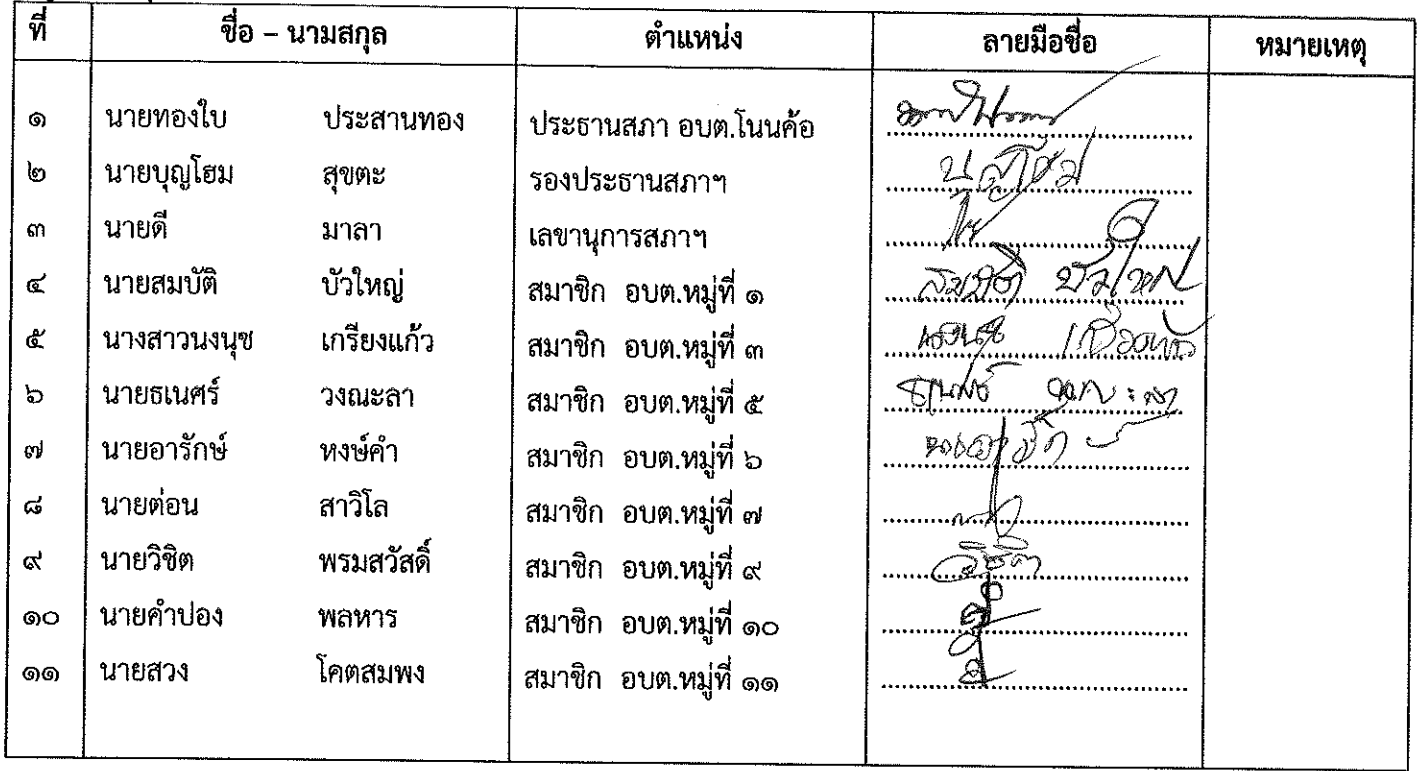 ที่ ชื่อ – นามสกุล ตำแหน่ง ลายมือชื่อ หมายเหตุ
๑ นายทองใบ ประสานทอง ประธานสภา อบต.โนนค้อ
๒ นายบุญโฮม สุขตะ รองประธานสภาฯ บุญโฮม
๓ นายดี มาลา เลขานุการสภาฯ
๔ นายสมบัติ บัวใหญ่ สมาชิก อบต.หมู่ที่ ๑ สมบัติ บัวใหญ่
๕ นางสาวนงนุช เกรียงแก้ว สมาชิก อบต.หมู่ที่ ๓ นงนุช
๖ นายธเนศร์ วงณะลา สมาชิก อบต.หมู่ที่ ๕ ธเนศร์ วงณะลา
๗ นายอารักษ์ หงษ์คำ สมาชิก อบต.หมู่ที่ ๖
๘ นายต่อน สาวิโล สมาชิก อบต.หมู่ที่ ๗
๙ นายวิชิต พรมสวัสดิ์ สมาชิก อบต.หมู่ที่ ๙ วิชิต
๑๐ นายคำปอง พลหาร สมาชิก อบต.หมู่ที่ ๑๐
๑๑ นายสวง โคตสมพง สมาชิก อบต.หมู่ที่ ๑๑